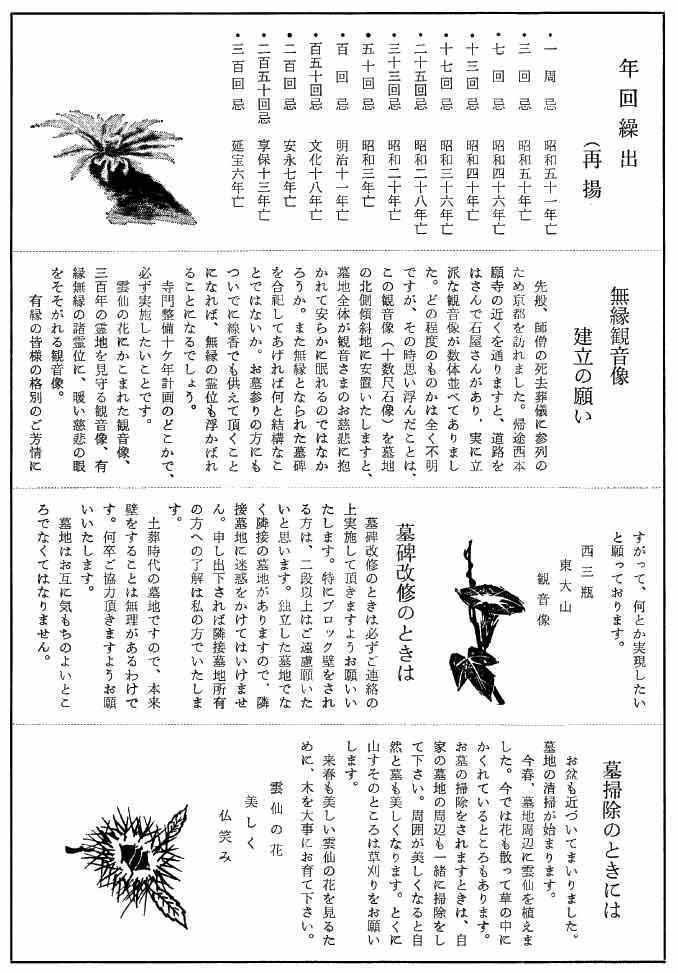 年回繰出
(再揚
・一周忌 昭和五十一年亡
・三回忌 昭和五十年亡
・七回忌 昭和四十六年亡
・十三回忌 昭和四十年亡
・十七回忌 昭和三十六年亡
・二十五回忌 昭和二十八年亡
・三十三回忌 昭和二十年亡
・五十回忌 昭和三年亡
・百回忌 明治十一年亡
・百五十回忌 文化十八年亡
・二百回忌 安永七年亡
・二百五十回忌 享保十三年亡
・三百回忌 延宝六年亡
無縁観音像
建立の願い
先般、師僧の死去葬儀に参列の
ため京都を訪れました。帰途西本
願寺の近くを通りますと、道路を
はさんで石屋さんがあり、実に立
派な観音像が数体並べてありまし
た。どの程度のものかは全く不明
ですが、その時思い浮んだことは、
この観音像（十数尺石像）を墓地
の北側傾斜地に安置いたしますと、
墓地全体が観音さまのお慈悲に抱
かれて安らかに眠れるのではなか
ろうか。また無縁となられた墓碑
を合祀してあげれば何と結構なこ
とではないか。お墓参りの方にも
ついでに線香でも供えて頂くこと
になれば、無縁の霊位も浮かばれ
ることになるでしょう。
寺門整備十ケ年計画のどこかで、
必ず実施したいことです。
雲仙の花にかこまれた観音像、
三百年の霊地を見守る観音像、有
縁無縁の諸霊位に、暖い慈悲の眼
をそそがれる観音像。
有縁の皆様の格別のご芳情に
すがって、何とか実現したい
と願っております。
西三瓶
東大山
観音像
墓碑改修のときは
墓碑改修のときは必ずご連絡の
上実施して頂きますようお願いい
たします。特にブロック壁をされ
る方は、二段以上はご遠慮願いた
いと思います。独立した墓地でな
く隣接の墓地がありますので、隣
接墓地に迷惑をかけてはいけませ
ん。申し出下されば隣接墓地所有
の方への了解は私の方でいたしま
す。
土葬時代の墓地ですので、本来
壁をすることは無理があるわけで
す。何卒ご協力頂きますようお願
いいたします。
墓地はお互に気もちのよいとこ
ろでなくてはなりません。
墓掃除のときには
お盆も近づいてまいりました。
墓地の清掃が始まります。
今春、墓地周辺に雲仙を植えま
した。今では花も散って草の中に
かくれているところもあります。
お墓の掃除をされますときは、自
家の墓地の周辺も一緒に掃除をし
て下さい。周囲が美しくなると自
然と墓も美しくなります。とくに
山すそのところは草刈りをお願い
します。
来春も美しい雲仙の花を見るた
めに、木を大事にお育て下さい。
雲仙の花
美しく
仏笑み